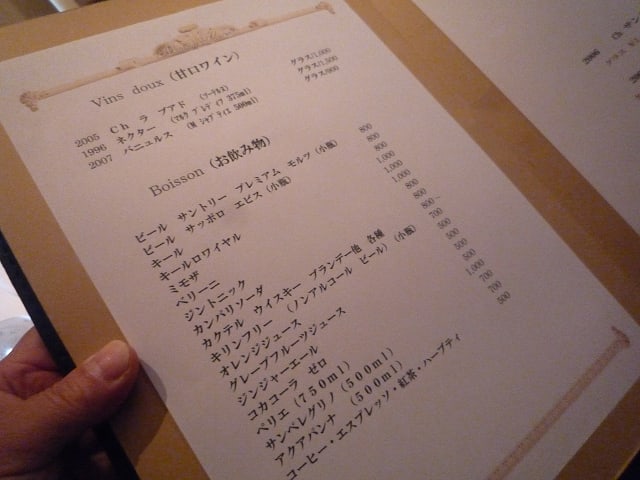 Vins doux (甘口ワイン)
2005 Ch ラ プアド グラス/1,000
1996 ネクター 375ml) グラス/1,500
2007 バニュルス 500ml) グラス/900
Boisson (お飲み物)
ビール サントリー プレミアム モルツ (小瓶) 800
ビール サッポロ エビス (小瓶) 800
キール 1,000
キールロワイヤル 1,000
ミモザ
ベリーニ
ジントニック 800
カンパリソーダ
カクテル ウィスキー ブランデー他 各種 800~
キリンフリー (ノンアルコール ビール) (小瓶) 700
オレンジジュース 500
グレープフルーツジュース 500
ジンジャーエール 500
コカコーラ ゼロ 500
ペリエ (750ml) 1,000
サンペレグリノ (500ml) 700
アクアパンナ (500ml) 700
コーヒー・エスプレッソ・紅茶・ハーブティ 500
2006 Ch